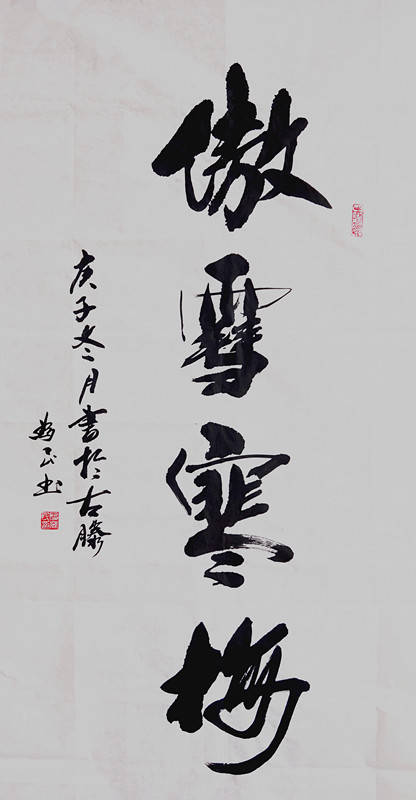 傲雪寒梅
庚子冬月書於古滕